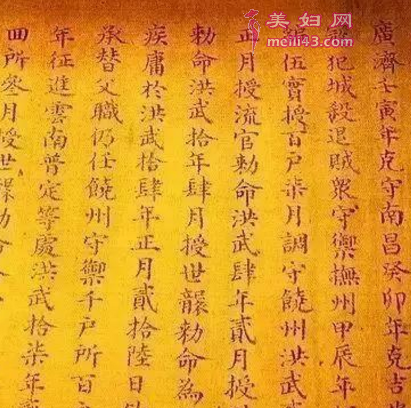 美妇网
meili43.com
廣濟壬寅年克守南昌癸卯年克吉
犯城殺退賊衆守禦撫州甲辰年
伍實授百戶柒月調守饒州洪武
正月授流官勅命洪武肆年貳月授
勅命洪武拾年肆月授世襲勅命為
疾庸於洪武拾肆年正月貳拾陸日
承替父職仍任饒州守禦千戶所百
年征進雲南普定等處洪武拾柒年
四所叅月授世襲勅命